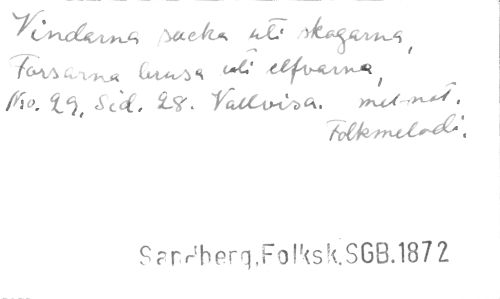 Vindarna sucka uti skogarna,
Forsarna brusa uti elfvarna,
No. 29, Sid. 28. Vallvisa. mel-not.
Folkmelodi.
Sandberg,Folksk.SGB.1872